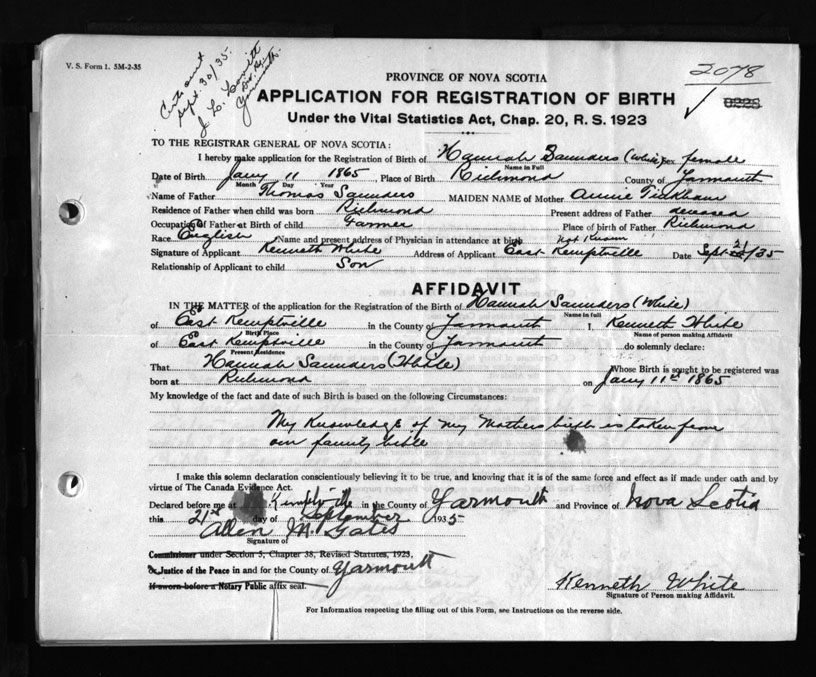 V. S. Form 1. 5M-2-35
Sept. 30/35.
J. L. Lovitt
Yarmouth.
2078
PROVINCE OF NOVA SCOTIA
APPLICATION FOR REGISTRATION OF BIRTH
Under the Vital Statistics Act, Chap. 20, R. S. 1923
TO THE REGISTRAR GENERAL OF NOVA SCOTIA:
I hereby make application for the Registration of Birth of Hannah Saunders (White) Sex female
Name in Full
Date of Birth Jany 11 1865, Place of Birth Richmond County of Yarmouth
Month Day Year
Name of Father Thomas Saunders MAIDEN NAME of Mother Annie Tinkham
Residence of Father when child was born Richmond Present address of Father deceased
Occupation of Father at Birth of child Farmer Place of birth of Father Richmond
Race English Name and present address of Physician in attendance at birth Not Known
Signature of Applicant Kenneth White Address of Applicant East Kemptville Date Sept 21/35
Relationship of Applicant to child Son
AFFIDAVIT
IN THE MATTER of the application for the Registration of the Birth of Hannah Saunders (White)
Name in full
of East Kemptville in the County of Yarmouth I, Kenneth White
Birth Place Name of person making Affidavit
of East Kemptville in the County of Yarmouth do solemnly declare:
Present Residence
That Hannah Saunders (White) Whose Birth is sought to be registered was
born at Richmond on Jany 11th 1865
My knowledge of the fact and date of such Birth is based on the following Circumstances:
My Knowledge of my Mothers birth is taken from
our family bible
I make this solemn declaration conscientiously believing it to be true, and knowing that it is of the same force and effect as if made under oath and by
virtue of The Canada Evidence Act.
Declared before me at Kemptville in the County of Yarmouth and Province of Nova Scotia
this 21st day of September 1935
Allen M. Gates
Signature of
Commissioner under Section 5, Chapter 38, Revised Statutes, 1923,
Or Justice of the Peace in and for the County of Yarmouth
If sworn before a Notary Public affix seal.
Kenneth White
Signature of Person making Affidavit.
For Information respecting the filling out of this Form, see Instructions on the reverse side.